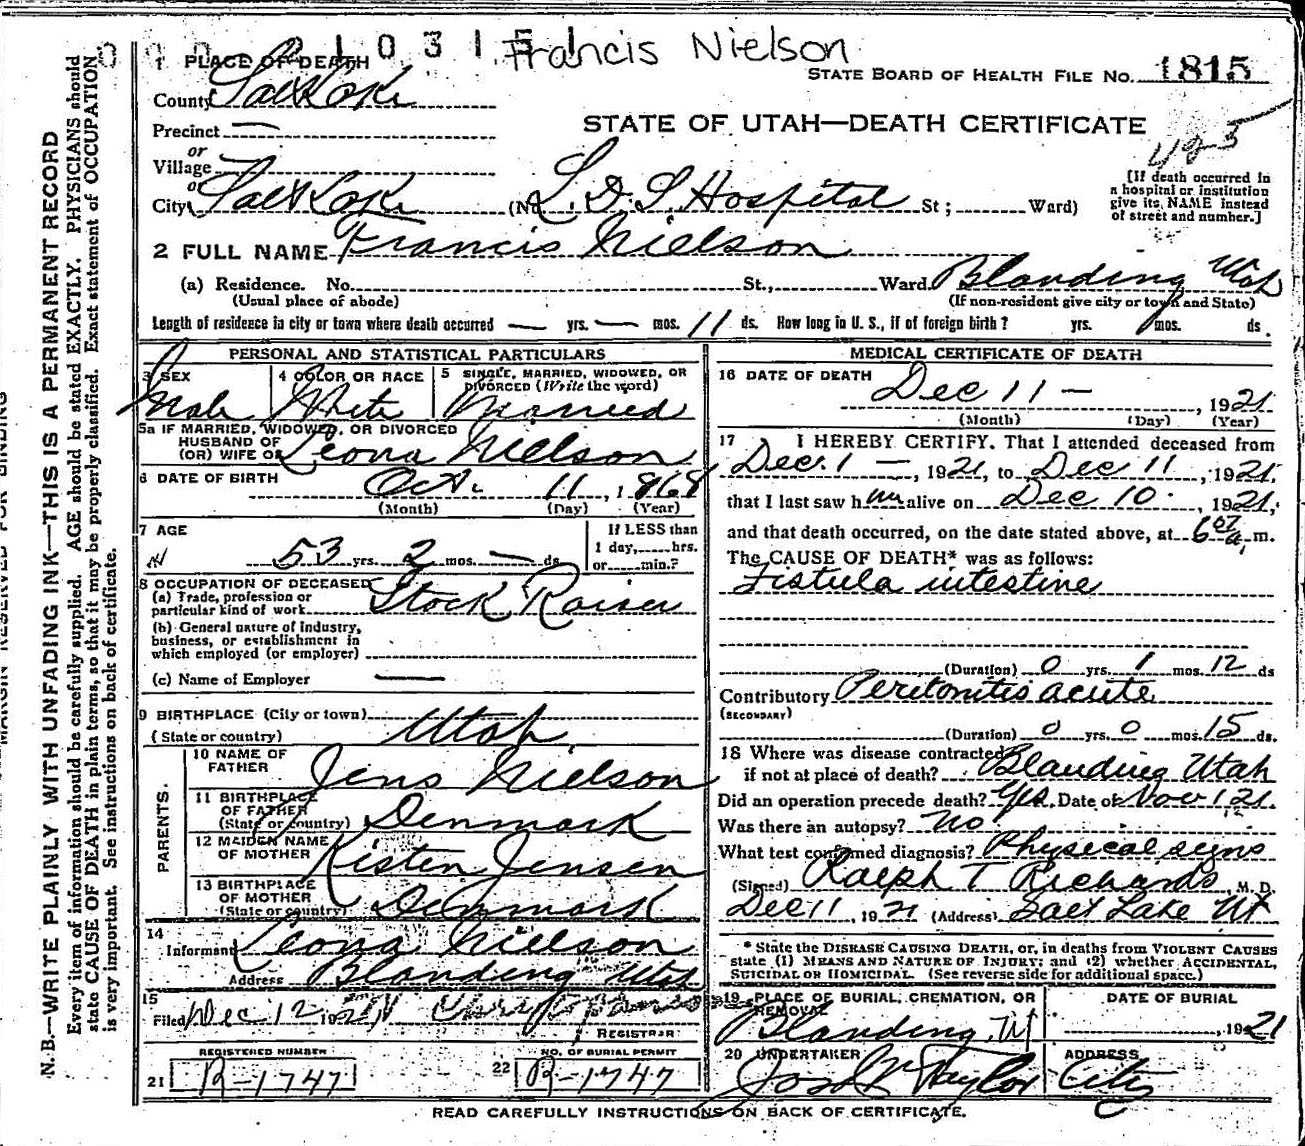 0310315 Francis Nielson
1 PLACE OF DEATH
STATE BOARD OF HEALTH FILE No. 1815
County Salt Lake
Precinct —
STATE OF UTAH—DEATH CERTIFICATE
or
Village
or
City Salt Lake (No. L. D. S. Hospital St; Ward)
[If death occurred in a hospital or institution give its NAME instead of street and number.]
2 FULL NAME Francis Nielson
(a) Residence. No. St., Ward Blanding Utah
(Usual place of abode) (If non-resident give city or town and State)
Length of residence in city or town where death occurred — yrs. — mos. 11 ds. How long in U. S., if of foreign birth? yrs. mos. ds.
PERSONAL AND STATISTICAL PARTICULARS
3 SEX 4 COLOR OR RACE 5 SINGLE, MARRIED, WIDOWED, OR DIVORCED (Write the word)
Male White Married
5a IF MARRIED, WIDOWED, OR DIVORCED
HUSBAND OF
(OR) WIFE OF Leona Nielson
6 DATE OF BIRTH Oct. 11, 1868
(Month) (Day) (Year)
7 AGE
53 yrs. 2 mos. — ds.
If LESS than
1 day, hrs.
or min.?
8 OCCUPATION OF DECEASED
(a) Trade, profession or
particular kind of work Stock Raiser
(b) General nature of industry,
business, or establishment in
which employed (or employer)
(c) Name of Employer —
9 BIRTHPLACE (City or town)
(State or country) Utah
PARENTS.
10 NAME OF
FATHER Jens Nielson
11 BIRTHPLACE
OF FATHER
(State or country) Denmark
12 MAIDEN NAME
OF MOTHER Kisten Jensen
13 BIRTHPLACE
OF MOTHER
(State or country) Denmark
14
Informant Leona Nielson
Address Blanding Utah
15
Filed Dec 12, 1921
REGISTRAR
REGISTERED NUMBER NO. OF BURIAL PERMIT
21 R-1747 22 R-1747
MEDICAL CERTIFICATE OF DEATH
16 DATE OF DEATH
Dec 11 — , 1921
(Month) (Day) (Year)
17 I HEREBY CERTIFY, That I attended deceased from
Dec. 1 —, 1921, to Dec 11, 1921,
that I last saw him alive on Dec 10, 1921,
and that death occurred, on the date stated above, at 6 a. m.
The CAUSE OF DEATH* was as follows:
Fistula intestine
(Duration) 0 yrs. 1 mos. 12 ds
Contributory Peritonitis acute
(SECONDARY)
(Duration) 0 yrs. 0 mos. 15 ds.
18 Where was disease contracted
if not at place of death? Blanding Utah
Did an operation precede death? Yes. Date of Nov 1 21.
Was there an autopsy? No
What test confirmed diagnosis? Physical signs
(Signed) Ralph T Richards, M. D.
Dec 11, 1921 (Address) Salt Lake Ut
* State the DISEASE CAUSING DEATH, or, in deaths from VIOLENT CAUSES
state (1) MEANS AND NATURE OF INJURY; and (2) whether ACCIDENTAL,
SUICIDAL OR HOMICIDAL. (See reverse side for additional space.)
19 PLACE OF BURIAL, CREMATION, OR REMOVAL DATE OF BURIAL
Blanding, Ut , 1921
20 UNDERTAKER ADDRESS
Jos Wm Taylor City
READ CAREFULLY INSTRUCTIONS ON BACK OF CERTIFICATE.
MARGIN RESERVED FOR BINDING
N. B.—WRITE PLAINLY WITH UNFADING INK—THIS IS A PERMANENT RECORD
Every item of information should be carefully supplied. AGE should be stated EXACTLY. PHYSICIANS should
state CAUSE OF DEATH in plain terms, so that it may be properly classified. Exact statement of OCCUPATION
is very important. See instructions on back of certificate.